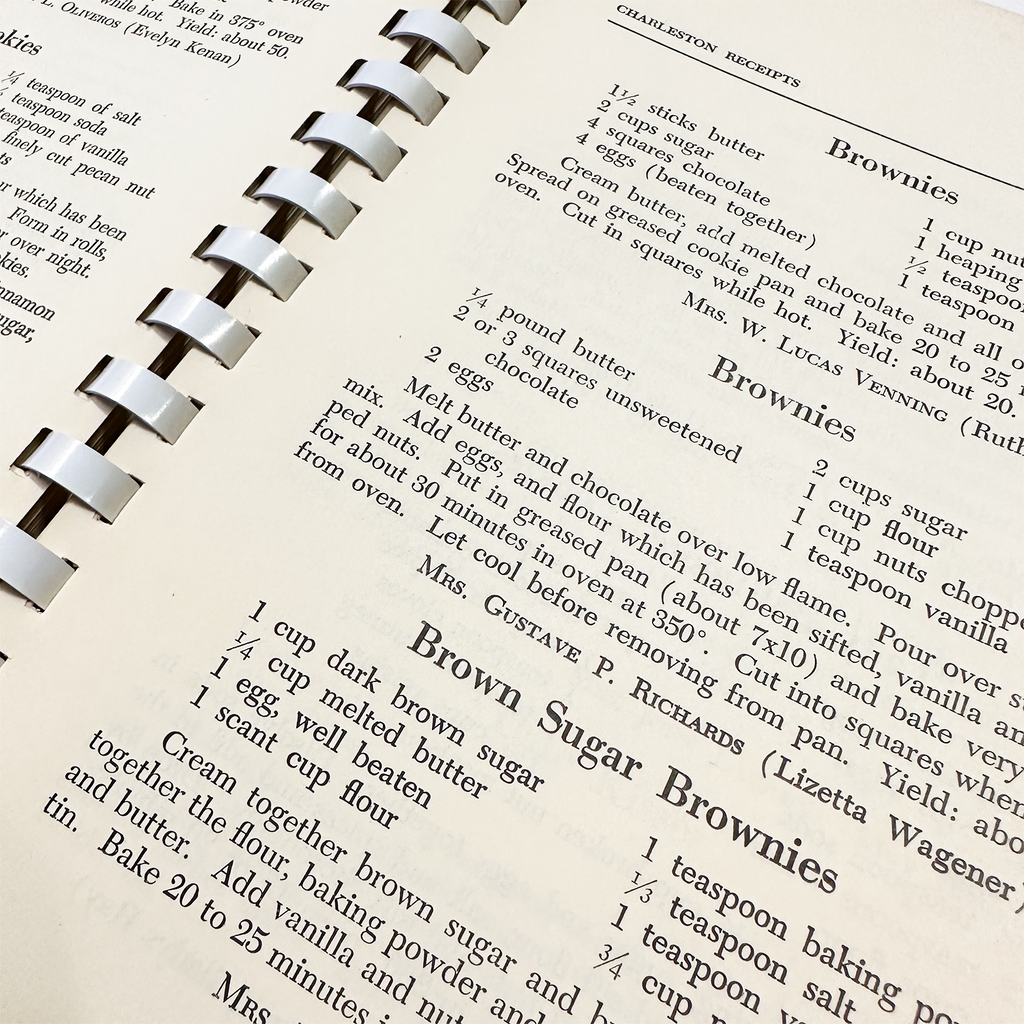 Bake in 375° oven
while hot. Yield: about 50.
L. OLIVEROS (Evelyn Kenan)
¼ teaspoon of salt
teaspoon soda
teaspoon of vanilla
finely cut pecan nut
which has been
Form in rolls,
or over night.
CHARLESTON RECEIPTS
Brownies
1½ sticks butter
2 cups sugar
4 squares chocolate
4 eggs (beaten together)
1 cup
1 heaping
½
1 teaspoon
Cream butter, add melted chocolate and all
Spread on greased cookie pan and bake 20 to 25
oven. Cut in squares while hot. Yield: about 20.
MRS. W. LUCAS VENNING
Brownies
¼ pound butter
2 or 3 squares unsweetened
chocolate
2 eggs
2 cups sugar
1 cup flour
1 cup nuts
1 teaspoon vanilla
Melt butter and chocolate over low flame. Pour over
mix. Add eggs, and flour which has been sifted, vanilla
ped nuts. Put in greased pan (about 7x10) and bake very
for about 30 minutes in oven at 350°. Cut into squares when
from oven. Let cool before removing from pan. Yield:
MRS. GUSTAVE P. RICHARDS (Lizetta Wagener)
Brown Sugar Brownies
1 cup dark brown sugar
¼ cup melted butter
1 egg, well beaten
1 scant cup flour
1 teaspoon baking
⅓ teaspoon salt
1 teaspoon
¾ cup
Cream together brown sugar and
together the flour, baking powder and
and butter. Add vanilla and
tin. Bake 20 to 25 minutes
MRS.